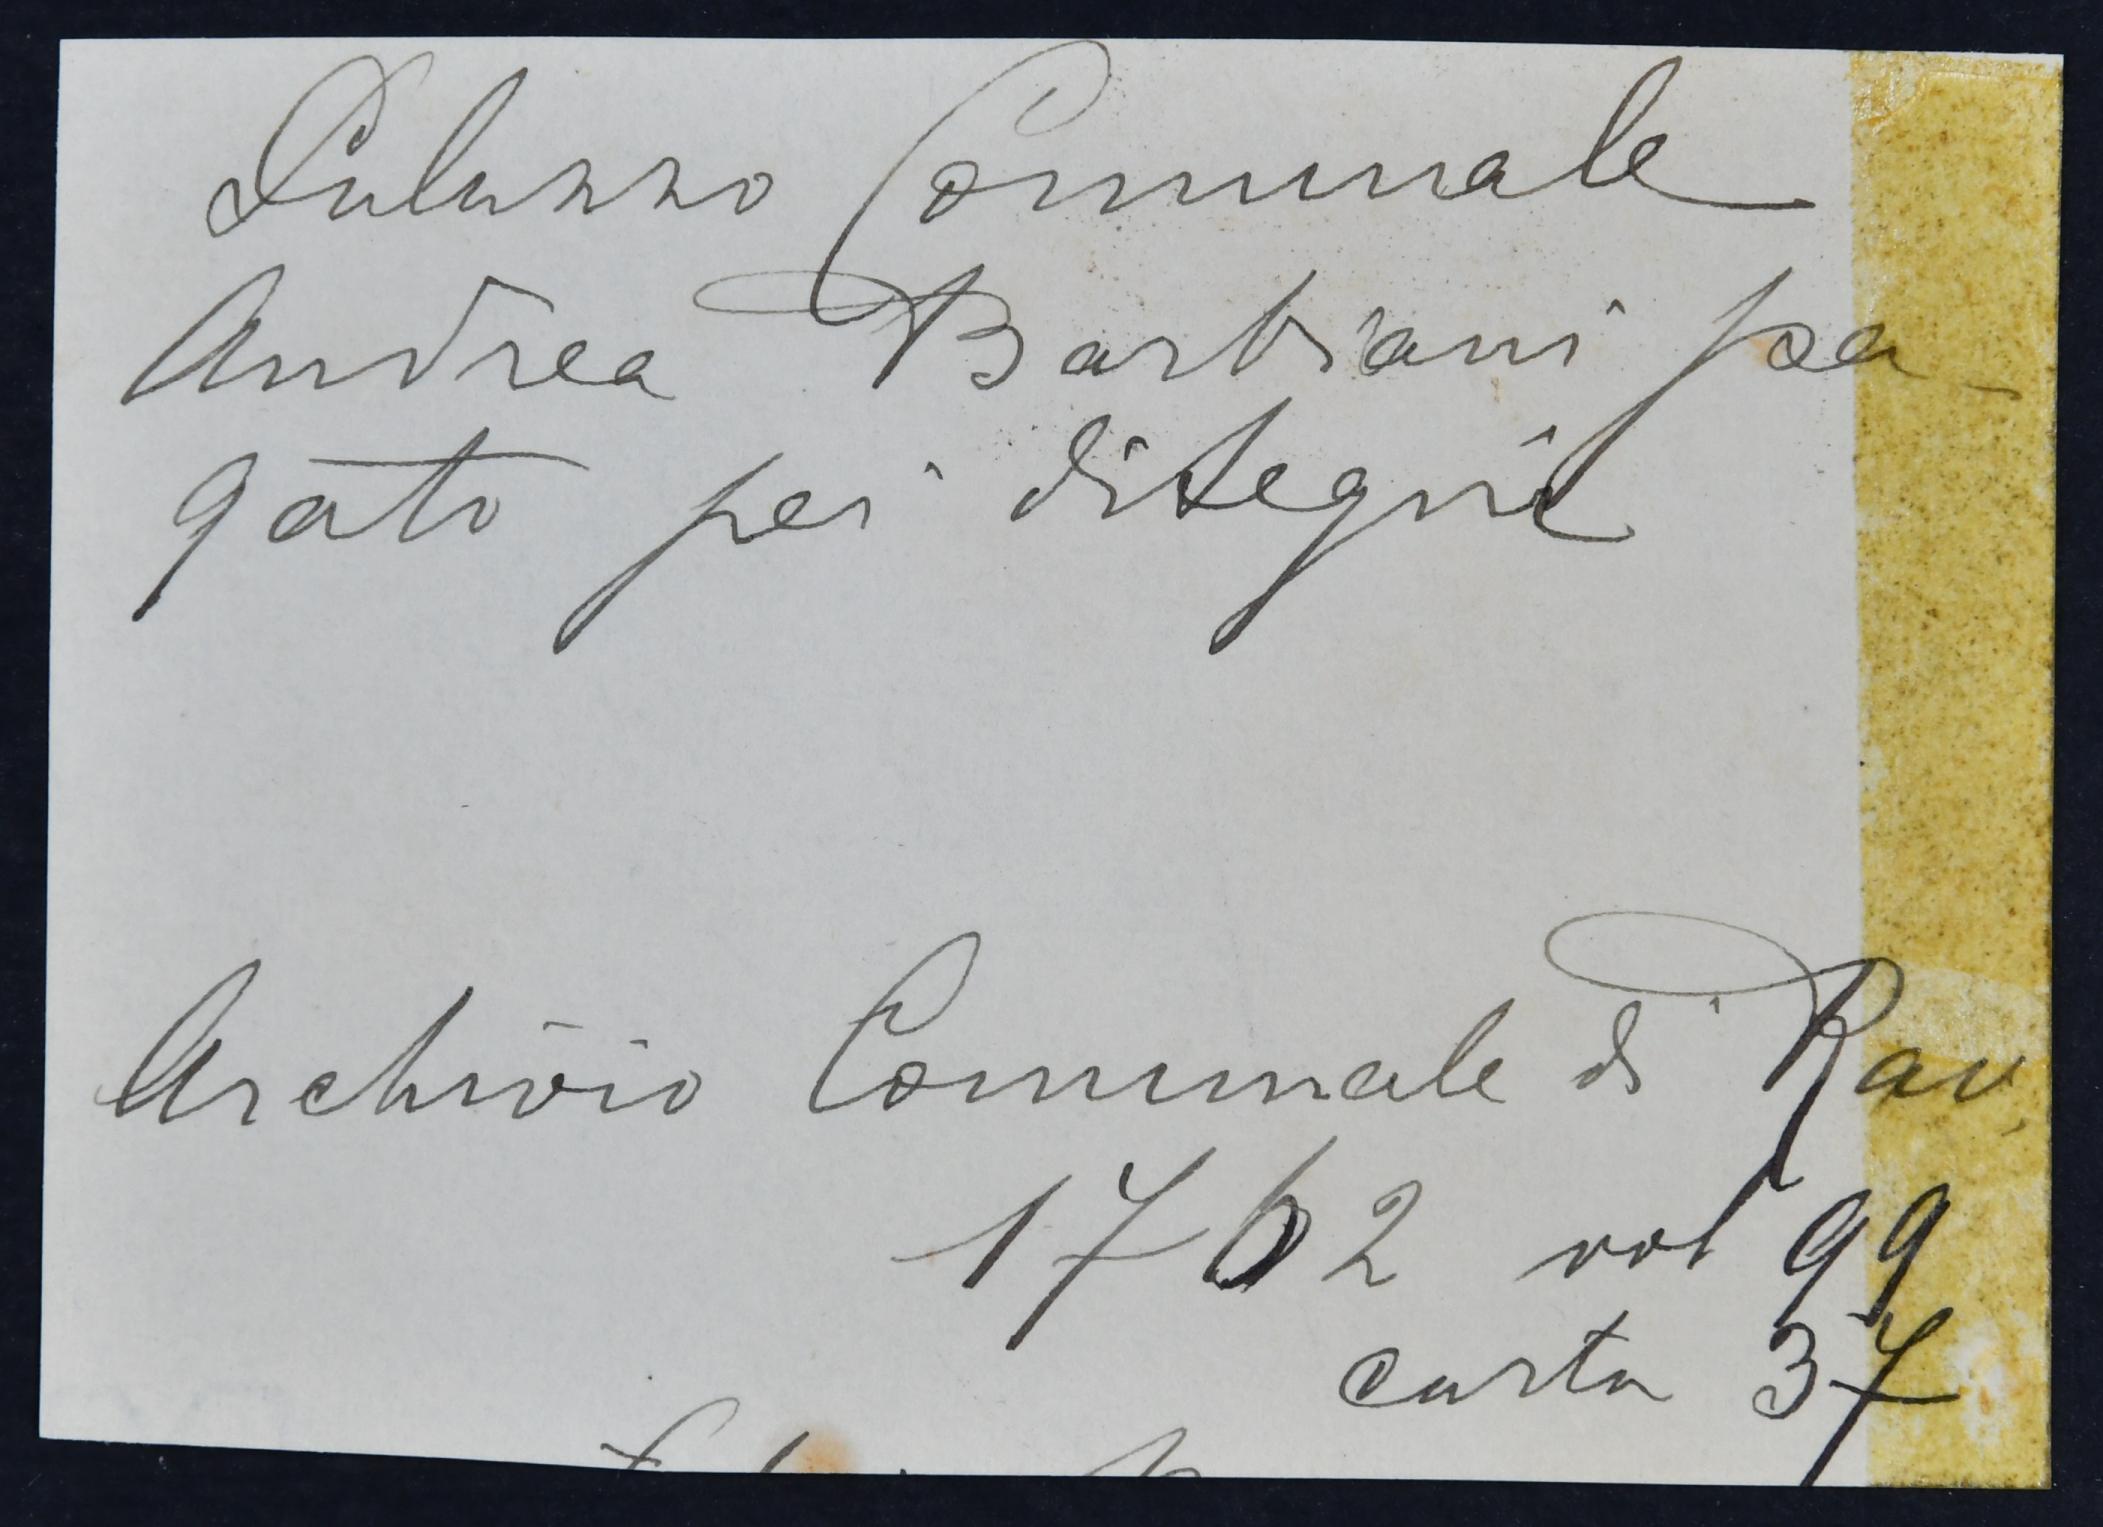 Palazzo Comunale
Andrea Barbiani pa-
gato pei disegni
Archivio Comunale di Rav.
1762 vol 99
carta 37